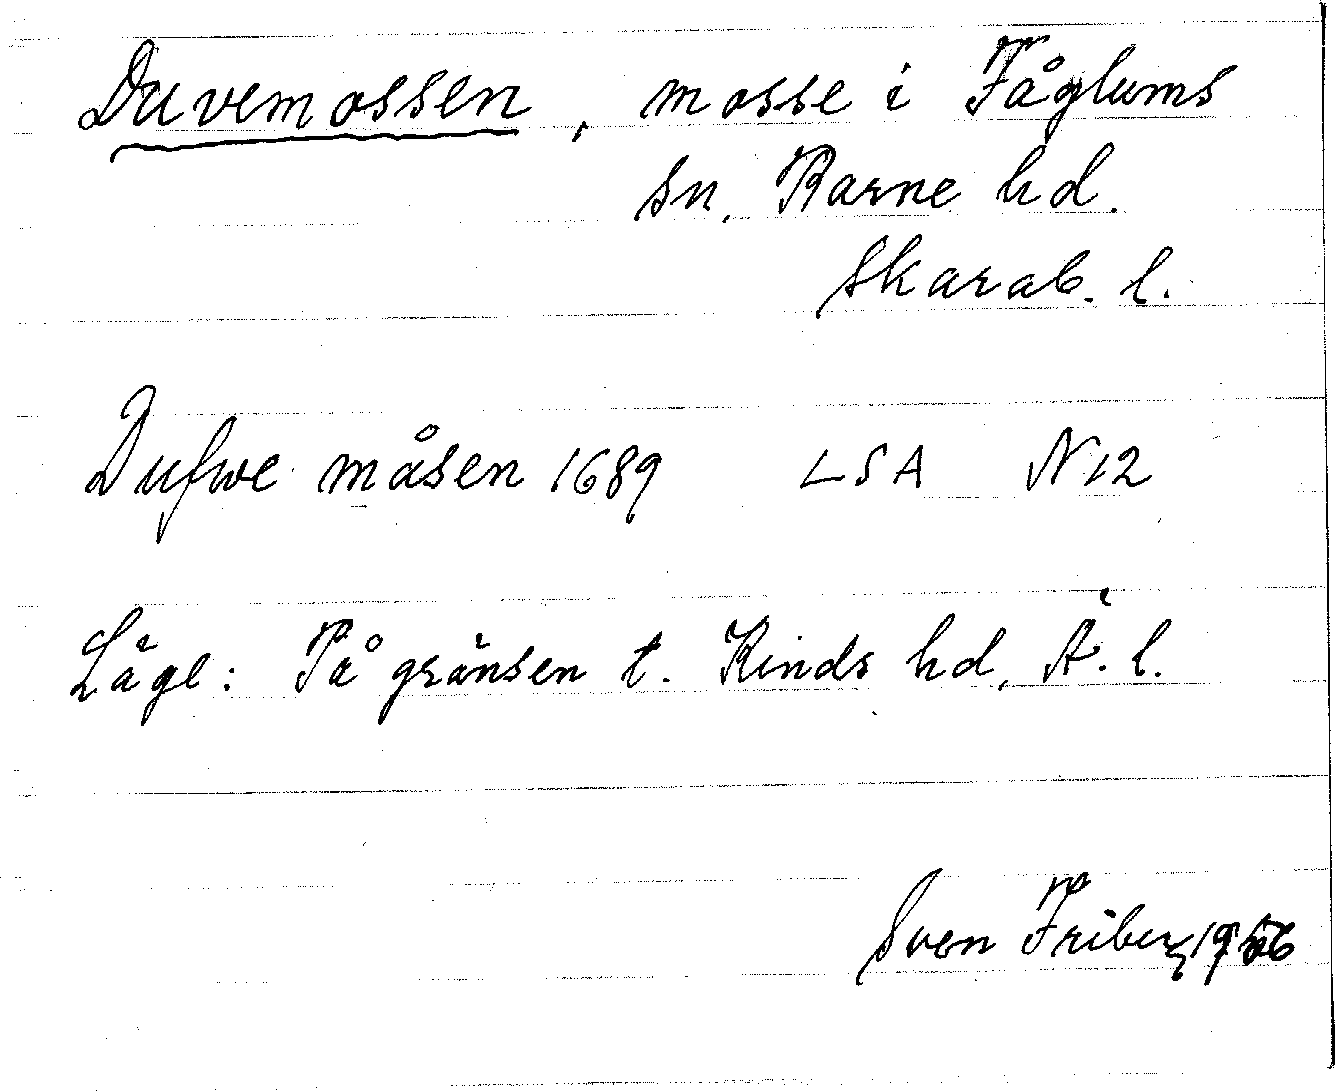 Duvemossen, mosse i Fåglums
sn, Barne hd.
Skarab. l.
Dufwe måsen 1689 LSA N12
Läge: På gränsen t. Kinds hd, Ä. l.
Sven Friberg 1956